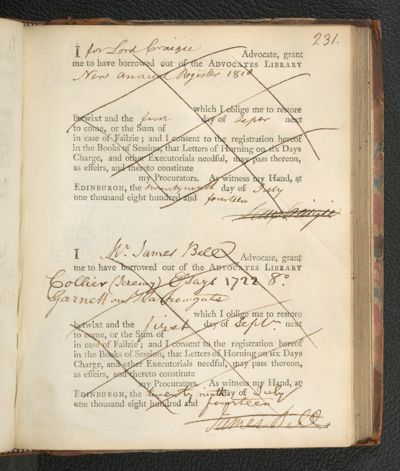 231.
I for Lord Craigie Advocate, grant
me to have borrowed out of the ADVOCATES LIBRARY
New Annual Register 1810
which I oblige me to restore
betwixt and the first day of Septr next
to come, or the Sum of
in case of Failzie; and I consent to the registration hereof
in the Books of Session, that Letters of Horning on six Days
Charge, and other Executorials needful, may pass thereon,
as effeirs, and thereto constitute
my Procurators. As witness my Hand, at
EDINBURGH, the twenty ninth day of July
one thousand eight hundred and fourteen
Craigie
I Mr. James Bell Advocate, grant
me to have borrowed out of the ADVOCATES LIBRARY
Collier (Jeremy) Essays 1722 8o
Garnett on Harrowgate
which I oblige me to restore
betwixt and the first day of Septr. next
to come, or the Sum of
in case of Failzie; and I consent to the registration hereof
in the Books of Session, that Letters of Horning on six Days
Charge, and other Executorials needful, may pass thereon,
as effeirs, and thereto constitute
my Procurators. As witness my Hand, at
EDINBURGH, the twenty ninth day of July
one thousand eight hundred and fourteen
James Bell